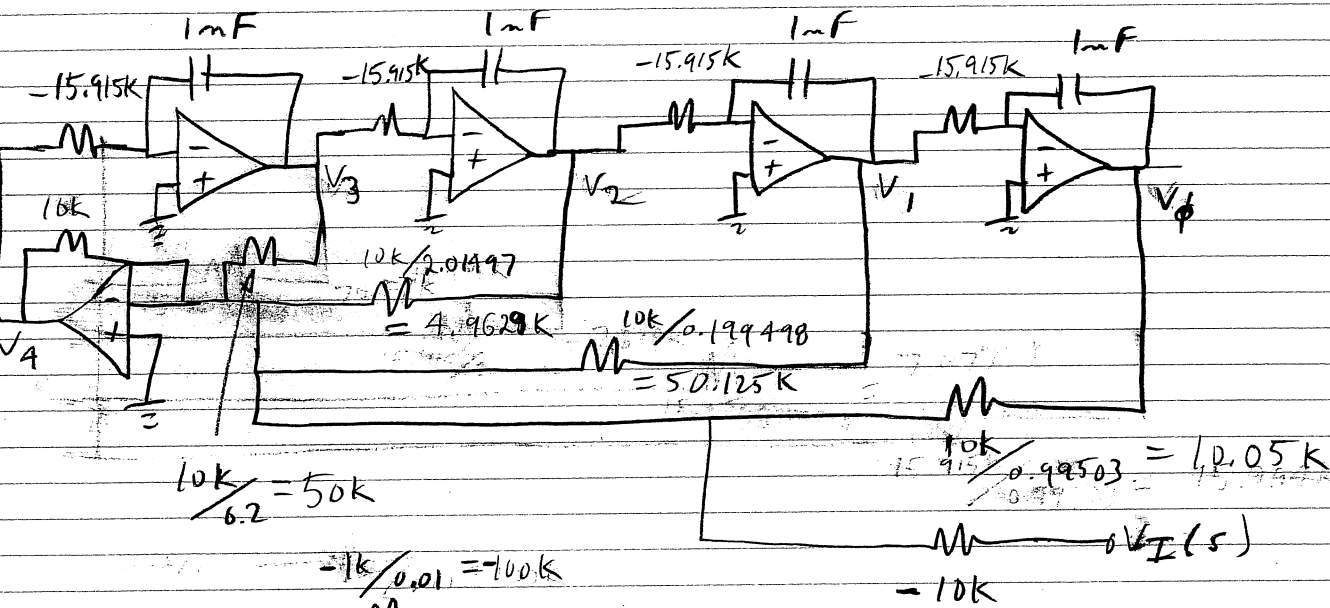 1nF 1nF 1nF 1nF
-15.915K -15.915K -15.915K -15.915K
- - - -
+ + + +
V3 V2 V1 Vϕ
10K
10K/2.01497
= 4.9629K
10K/0.199498
= 50.125K
-
+
V4
10K/0.99503 = 10.05K
10K/6.2 = 50K
VI(s)
-1K/0.01 = -100K
-10K